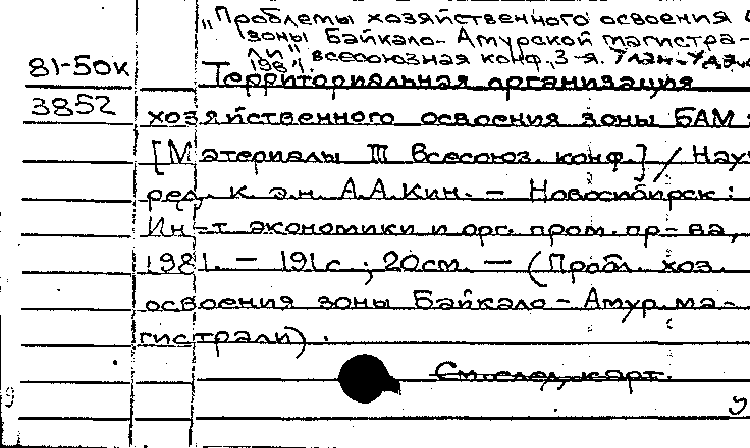 „Проблемы хозяйственного освоения
зоны Байкало-Амурской магистра-
ли" всесоюзная конф., 3-я. Улан-Удэ,
1981.
81-50к Территориальная организация
3852 хозяйственного освоения зоны БАМ:
[Материалы III Всесоюз. конф.] / Науч
ред. к. э.н. А.А.Кин. — Новосибирск:
Ин-т экономики и орг. пром. пр-ва,
1981. — 191с.; 20см. — (Пробл. хоз.
освоения зоны Байкало-Амур. ма-
гистрали).
См. след. карт.